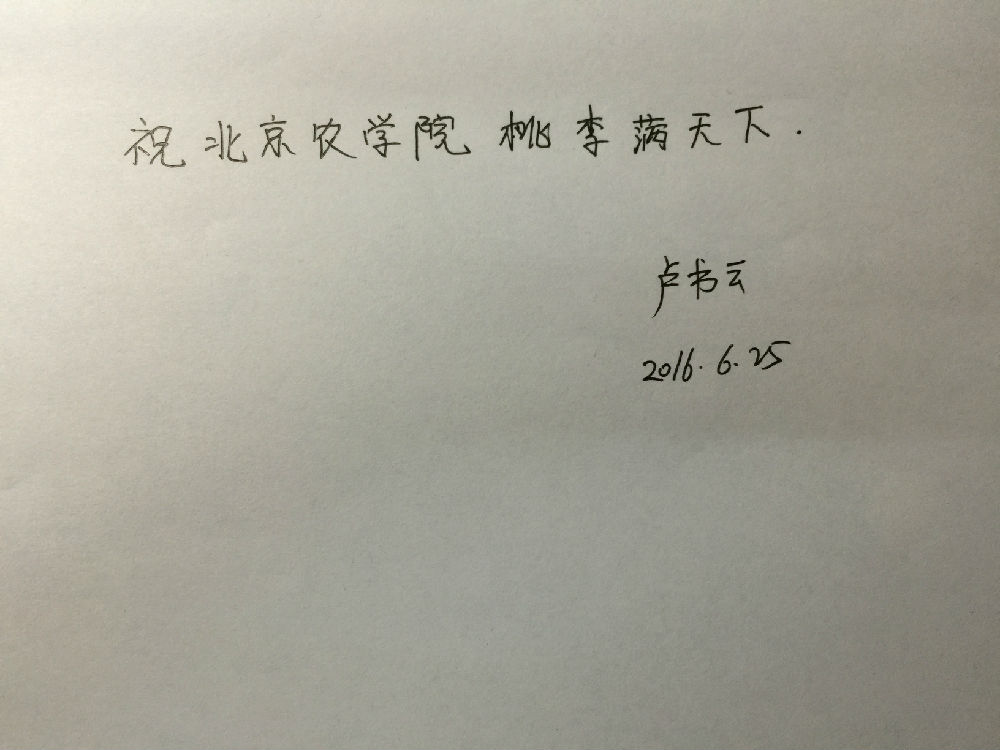 祝北京农学院 桃李满天下.
卢书云
2016.6.25